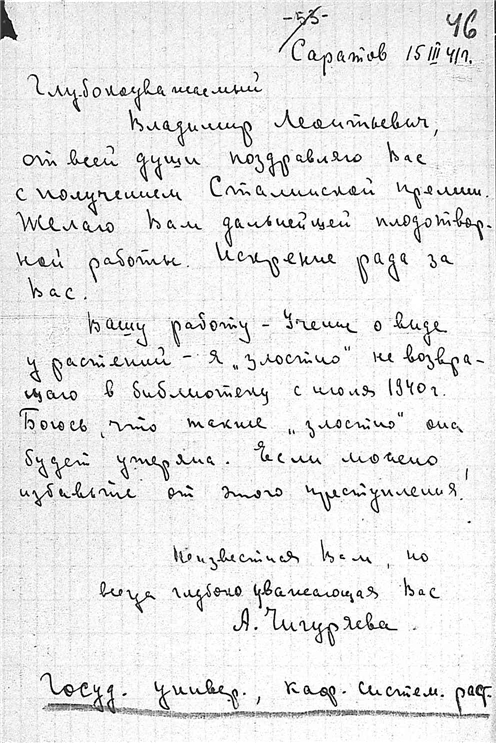 -53-
46
Саратов 15 III 41 г.
Глубокоуважаемый
Владимир Леонтьевич,
от всей души поздравляю Вас
с получением Сталинской премии.
Желаю Вам дальнейшей плодотвор-
ной работы. Искренне рада за
Вас.
Вашу работу – Учение о виде
у растений – я „злостно" не возвра-
щаю в библиотеку с июля 1940 г.
Боюсь, что также „злостно" она
будет утеряна. Если можно,
избавьте от этого преступления!
Неизвестная Вам, но
всегда глубоко уважающая Вас
А. Чигуряева.
Госуд. универ., каф. систем. раст.